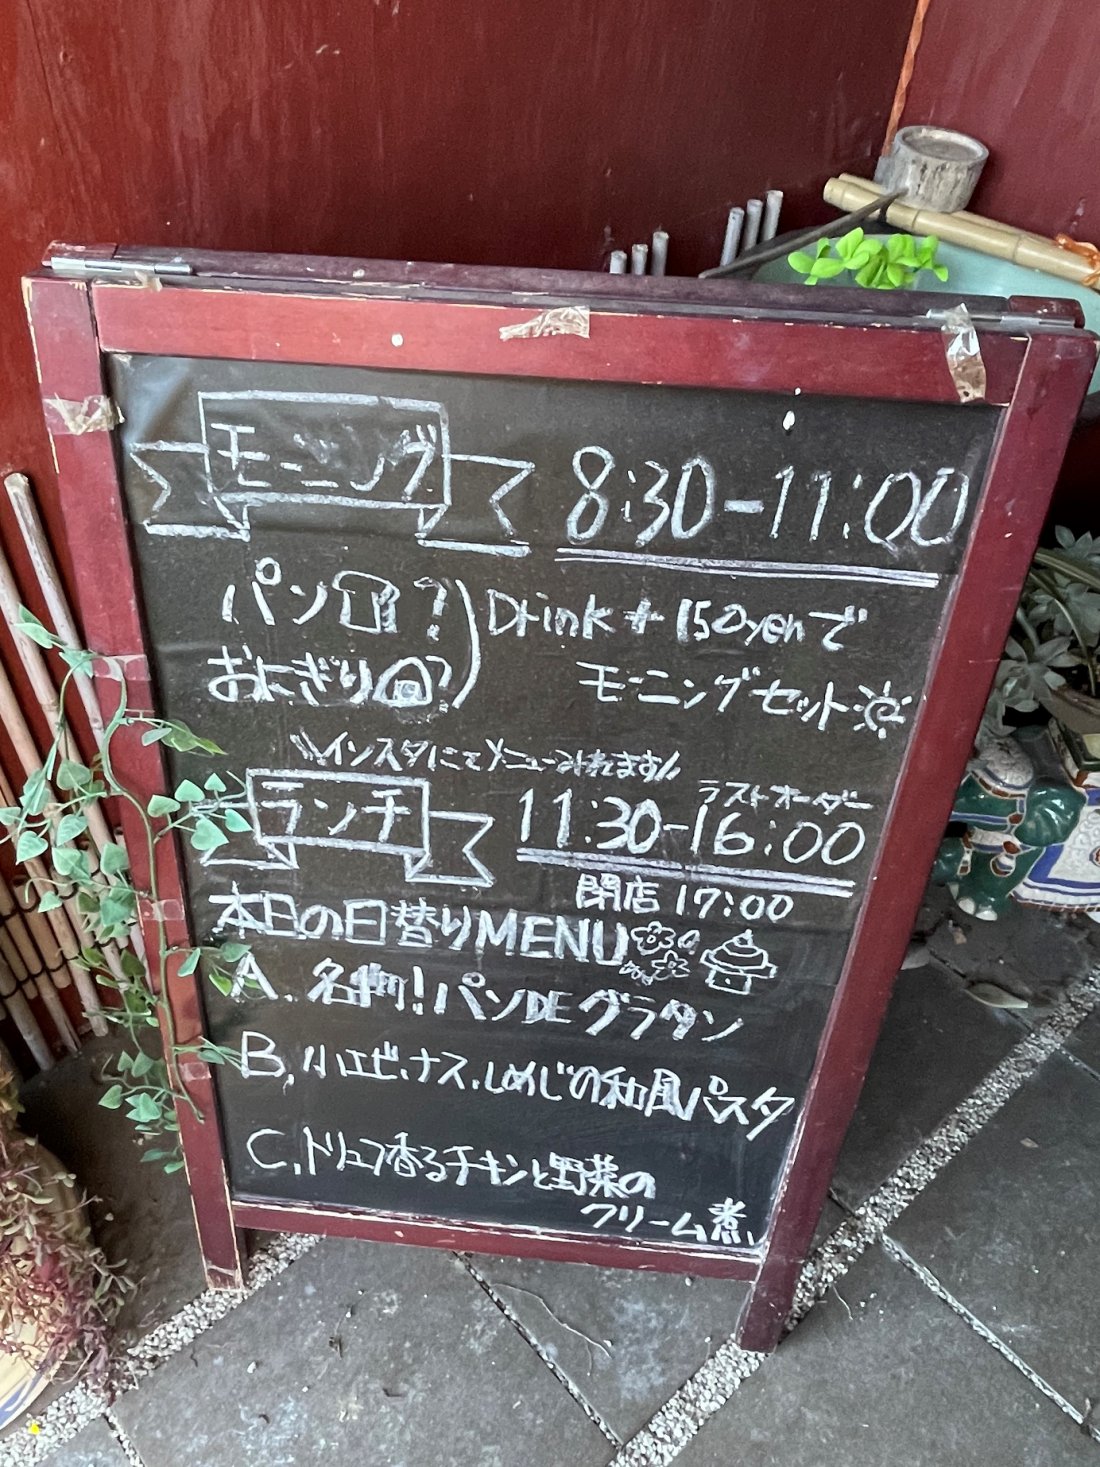 モーニング 8:30-11:00
パン?
おにぎり?
Drink + 150yenで
モーニングセット
\\インスタにてメニューみれます//
ランチ
ラストオーダー
11:30-16:00
閉店 17:00
本日の日替りMENU
A. 名物!パンDEグラタン
B. 小エビ、ナス、しめじの和風パスタ
C. トリュフ香るチキンと野菜の
クリーム煮